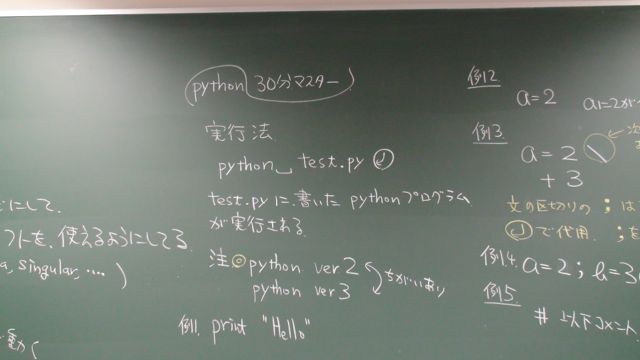 python 30分マスター
実行法
python␣ test.py
test.pyに書いたpythonプログラム
が実行される
注◎python ver2
python ver3
ちがいあり
例1. print "Hello"
にして、
フトを、使えるようにしてる
a, singular, ....)
動く
例2
a=2
a1=2が
例3.
次
a = 2 \
+ 3
文の区切りの ; は
で代用. ; を
例4. a=2; b=3
例5
# 以下コメント